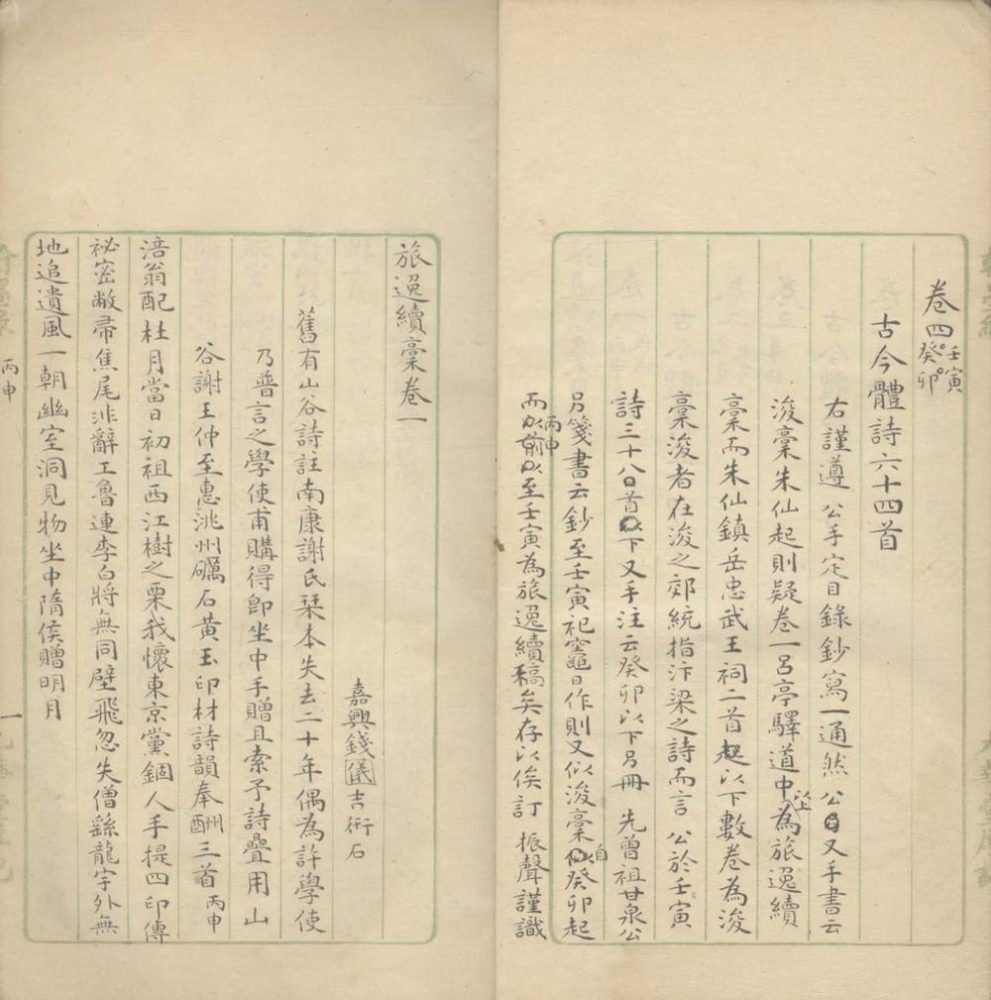 卷四壬寅癸卯
古今體詩六十四首
右謹遵 公手定目錄鈔寫一通然 公又手書云
浚稾朱仙起則疑卷一呂亭驛道中為旅逸續
稾而朱仙鎮岳忠武王祠二首起以下數卷為浚
稾浚者在浚之郊統指汴梁之詩而言 公於壬寅
詩三十八首下又手注云癸卯以下另冊 先曾祖甘泉公
另箋書云鈔至壬寅祀竈日作則又似浚稾自癸卯起
而丙申以前以至壬寅為旅逸續稿矣存以俟訂 振聲謹識
旅逸續稾卷一
嘉興錢儀吉衎石
舊有山谷詩註南康謝氏琹本失去二十年偶為許學使
乃普言之學使甫購得卽坐中手贈且索予詩疊用山
谷謝王仲至惠洮州礪石黃玉印材詩韻奉酬三首丙申
涪翁配杜月當日初祖西江樹之栗我懷東京黨錮人手提四印傳
祕密敝帚焦尾非辭工魯連李白將無同壁飛忽失僧繇龍宇外無
地追遺風一朝幽室洞見物坐中隋侯贈明月
丙申
一